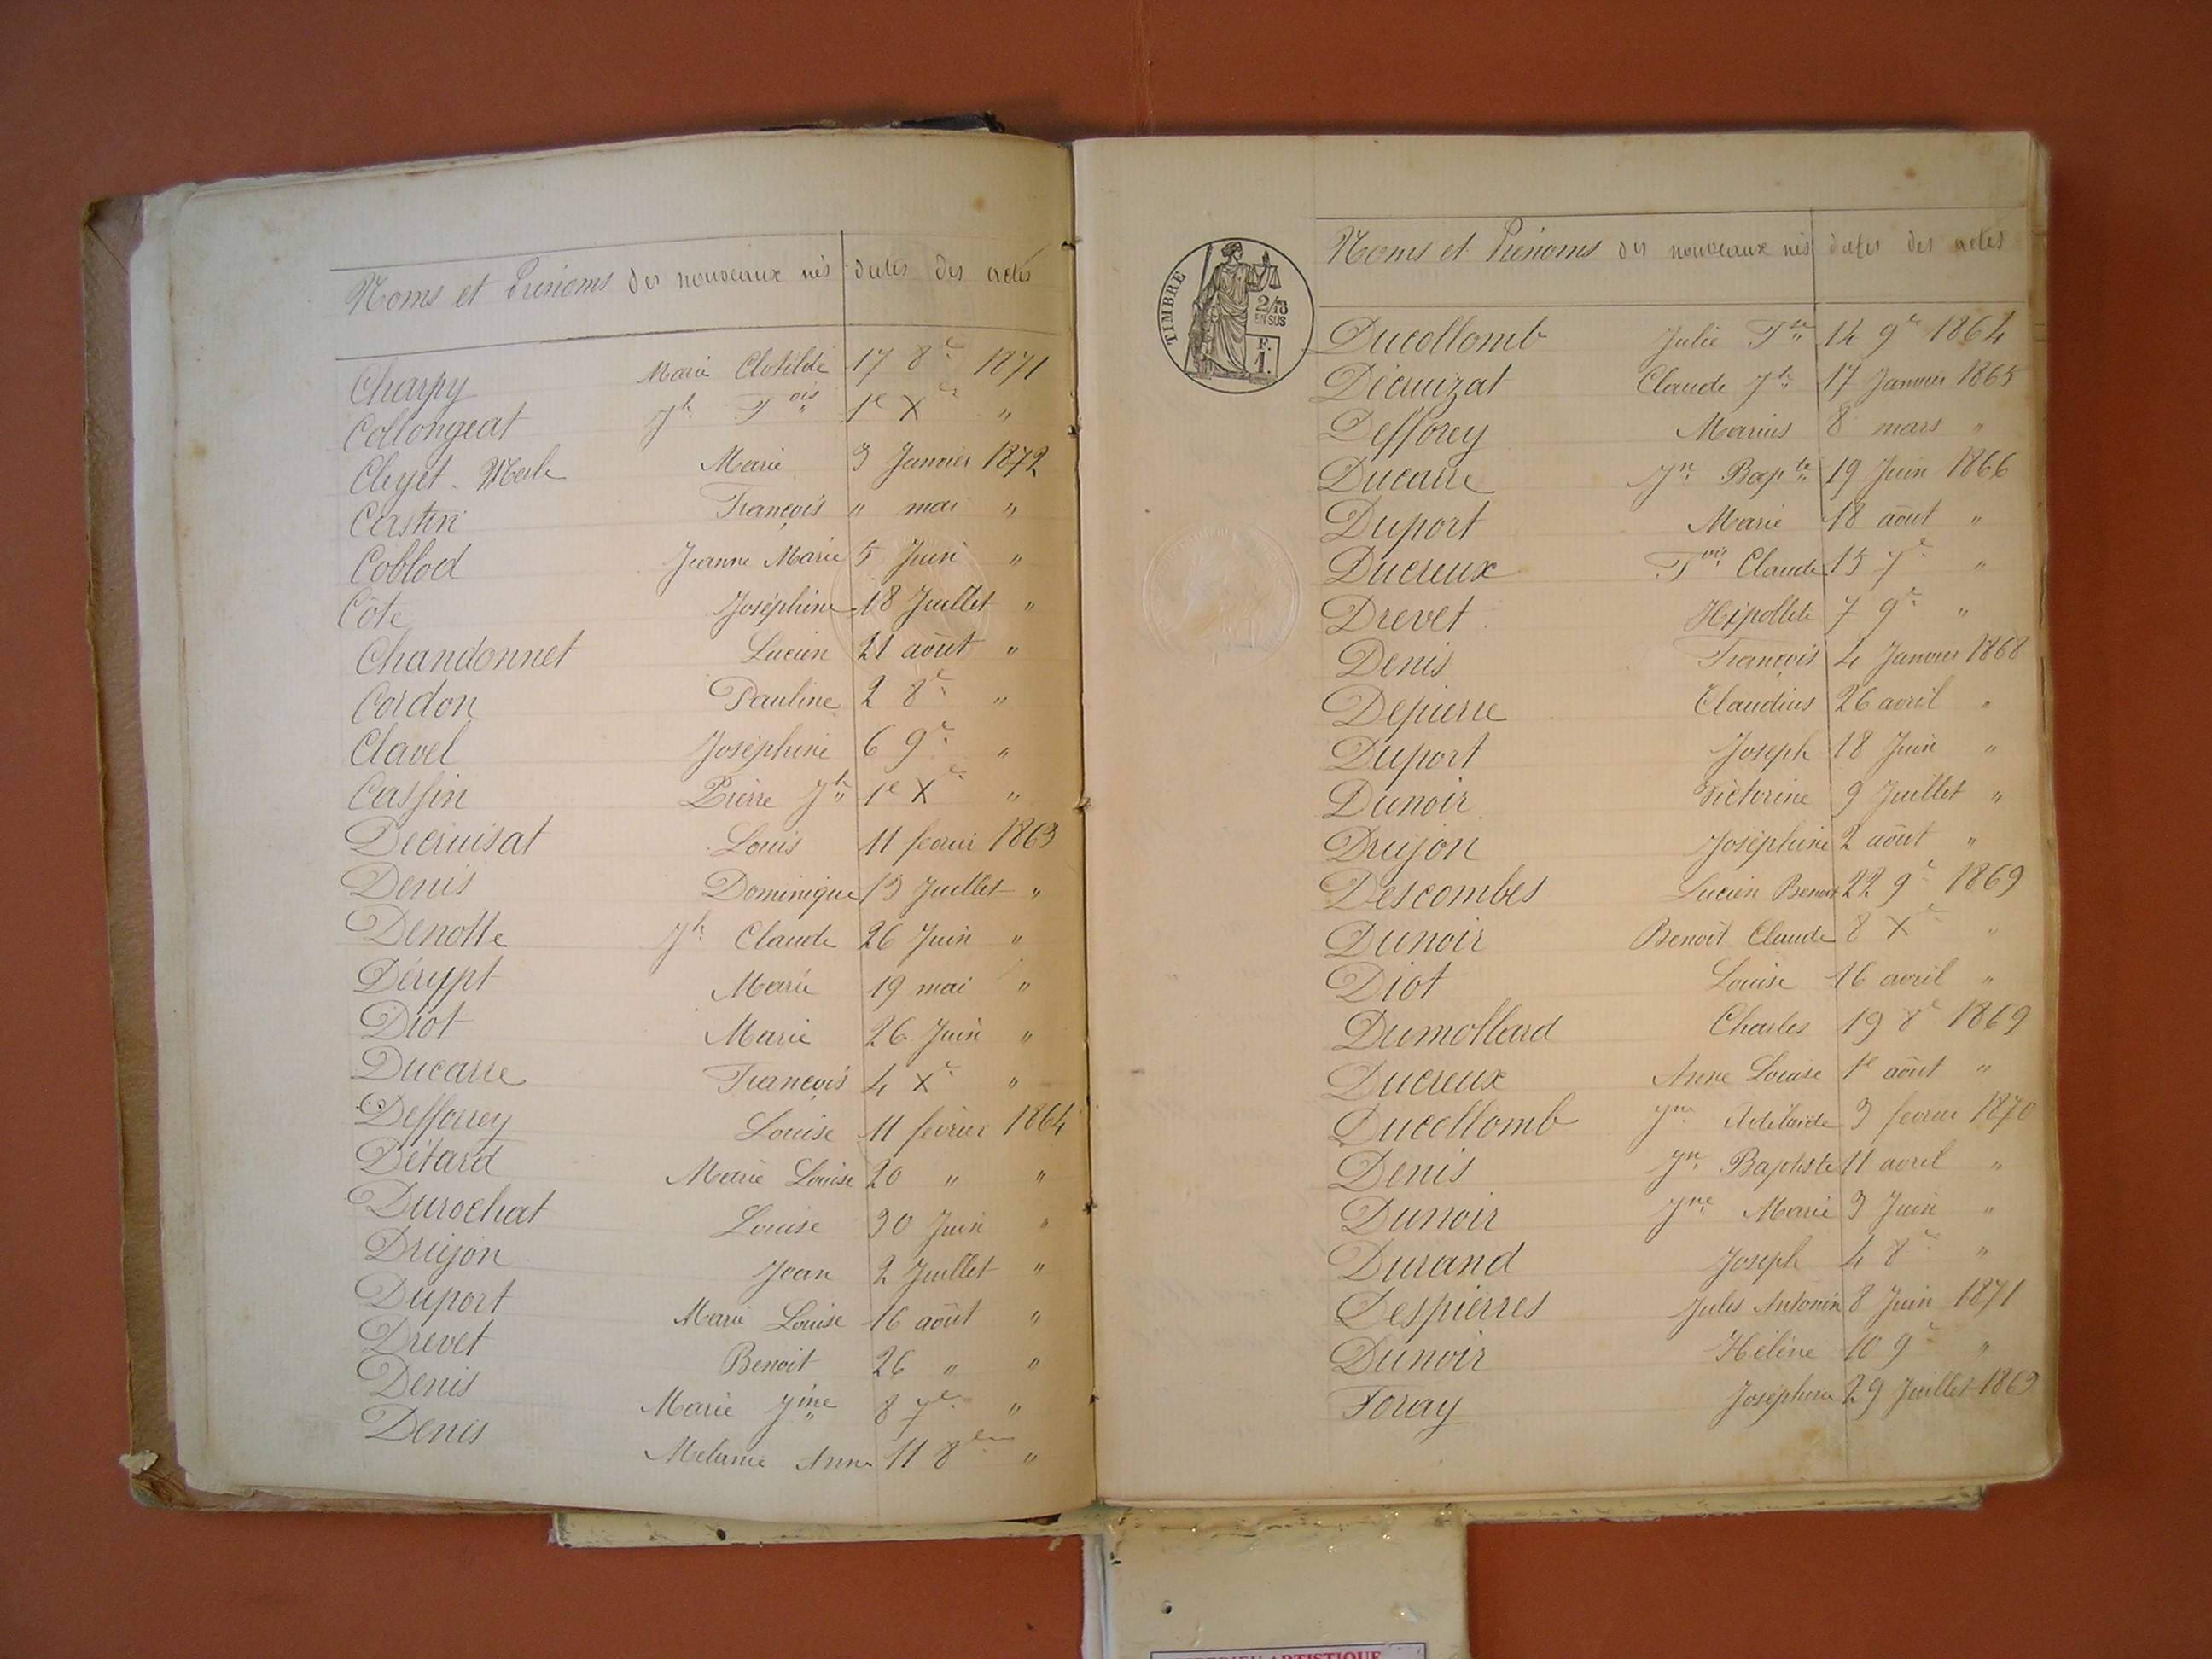 Noms et Prénoms des nouveaux nés dates des actes
Charpy Marie Clotilde 17 8e 1871
Collongeat Jh Fois 1e Xe "
Cleyet-Merle Marie 3 Janvier 1872
Castin François " mai "
Coblod Jeanne Marie 5 Juin "
Côte Joséphine 18 Juillet "
Chandonnet Lucien 21 août "
Cordon Pauline 2 8e "
Clavel Joséphine 6 9e "
Cassin Pierre Jh 1e Xe "
Decruisat Louis 11 fevrier 1863
Denis Dominique 13 Juillet "
Denotte Jh Claude 26 Juin "
Dérypt Marie 19 mai "
Diot Marie 26 Juin "
Ducarre François 4 Xe "
Defforey Louise 11 février 1864
Détard Marie Louise 20 " "
Durochat Louise 30 Juin "
Drujon Jean 2 Juillet "
Duport Marie Louise 16 août "
Drevet Benoit 26 " "
Denis Marie Jine 8 7e "
Denis Melanie Anne 11 8 "
TIMBRE
2/10
EN SUS
F.
1.
Noms et Prénoms des nouveaux nés dates des actes
Ducollomb Julie 14 9e 1864
Décruizat Claude Jh 17 Janvier 1865
Defforey Marius 8 mars "
Ducarre Jn Bapte 19 Juin 1866
Duport Marie 18 août "
Ducreux Fois Claude 15 7e "
Drevet Hipollite 7 9e "
Denis François 4 Janvier 1868
Depierre Claudius 26 avril "
Duport Joseph 18 Juin "
Dunoir Victorine 9 Juillet "
Drujon Joséphine 2 août "
Descombes Lucien Benoit 22 9e 1869
Dunoir Benoit Claude 8 Xe "
Diot Louise 16 avril "
Dumollard Charles 19 8e 1869
Ducreux Anne Louise 1e août "
Ducollomb Jne Adélaïde 3 fevrier 1870
Denis Jn Baptiste 11 avril "
Dunoir Jne Marie 3 Juin "
Durand Joseph 4 8e "
Despierres Jules Antonin 8 Juin 1871
Dunoir Hélène 10 9e "
Foray Joséphine 29 Juillet 1863
ARTISTIQUE